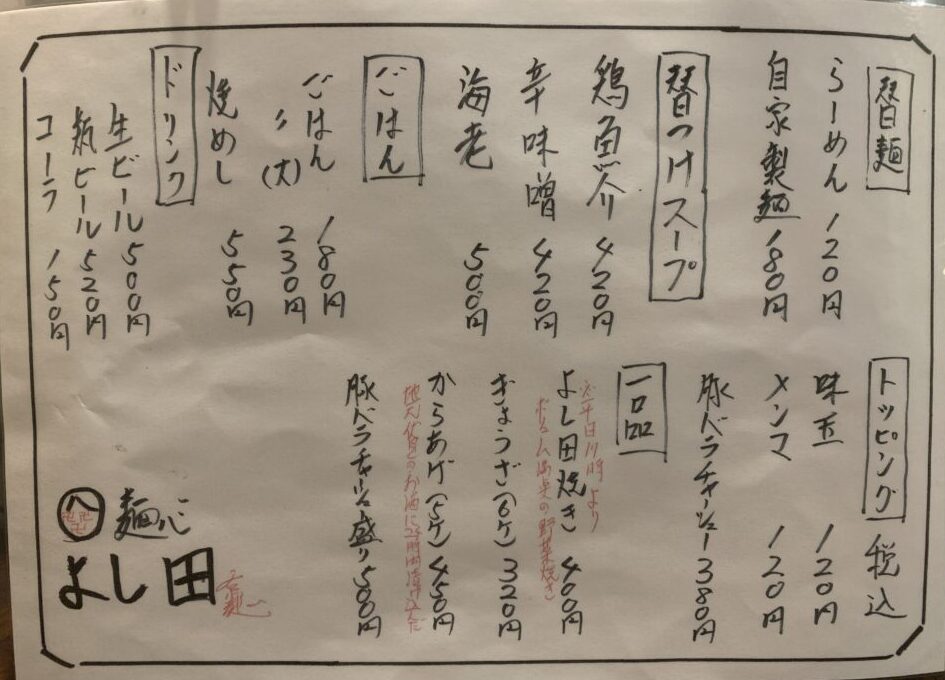 替麺
らーめん 120円
自家製麺 180円
替つけスープ
鶏魚介 420円
辛味噌 420円
海老 500円
ごはん
ごはん 180円
〃(大) 230円
焼めし 550円
ドリンク
生ビール 500円
瓶ビール 520円
コーラ 150円
トッピング 税込
味玉 120円
メンマ 120円
豚バラチャーシュー 380円
一品
※平日17時より
よし田焼き 400円
ボリューム満点の野菜焼き
ぎょうざ(6ケ) 320円
からあげ(5ケ) 450円
に24時間漬け込んだ
豚バラチャーシュー盛り 500円
麺心
よし田